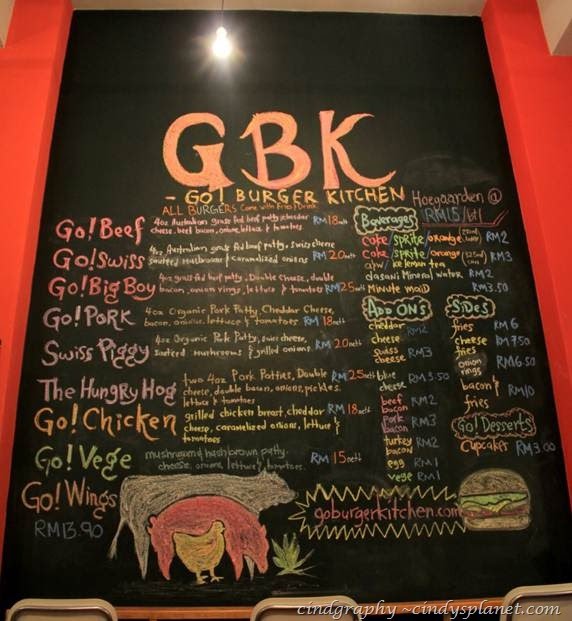 GBK
- GO! BURGER KITCHEN
ALL BURGERS Come with Fries & Drink
Hoegaarden @
RM15/btl
Go! Beef 4oz Australian grass fed beef patty, cheddar RM18nett
cheese, beef bacon, onion, lettuce & tomatoes
Go! Swiss 4oz Australian grass fed beef patty, swiss cheese RM20nett
sauteed mushrooms & caramalized onions
Go! Big Boy 4oz grass fed beef patty, Double cheese, double RM25nett
bacon, onion rings, lettuce & tomatoes
Go! Pork 4oz Organic Pork Patty, Cheddar Cheese, RM18nett
bacon, onions, lettuce & tomatoes
Swiss Piggy 4oz Organic Pork Patty, Swiss cheese, RM20nett
Sauteed mushrooms & grilled onions.
The Hungry Hog two 4oz Pork Patties, Double RM25nett
cheese, double bacon, onions, pickles,
lettuce & tomatoes
Go! Chicken grilled chicken breast, cheddar RM18nett
cheese, caramelized onions, lettuce &
tomatoes
Go! Vege mushroom & hash brown patty, RM15nett
cheese, onions, lettuce & tomatoes.
Go! Wings
RM13.90
Beverages
coke/sprite/orange RM2
coke/sprite/orange (325ml) RM3
a&w/ice lemon tea
dasani Mineral water RM2
Minute maid RM3.50
ADD ONS
cheddar cheese RM2
swiss cheese RM3
blue cheese RM3.50
beef bacon RM2
Pork bacon RM3
turkey bacon RM2
egg RM1
vege RM1
SiDES
fries RM6
cheese fries RM7.50
onion rings RM6.50
bacon & fries RM10
Go! Desserts
Cupcakes RM3.00
goburgerkitchen.com
cindgraphy ~cindysplanet.com